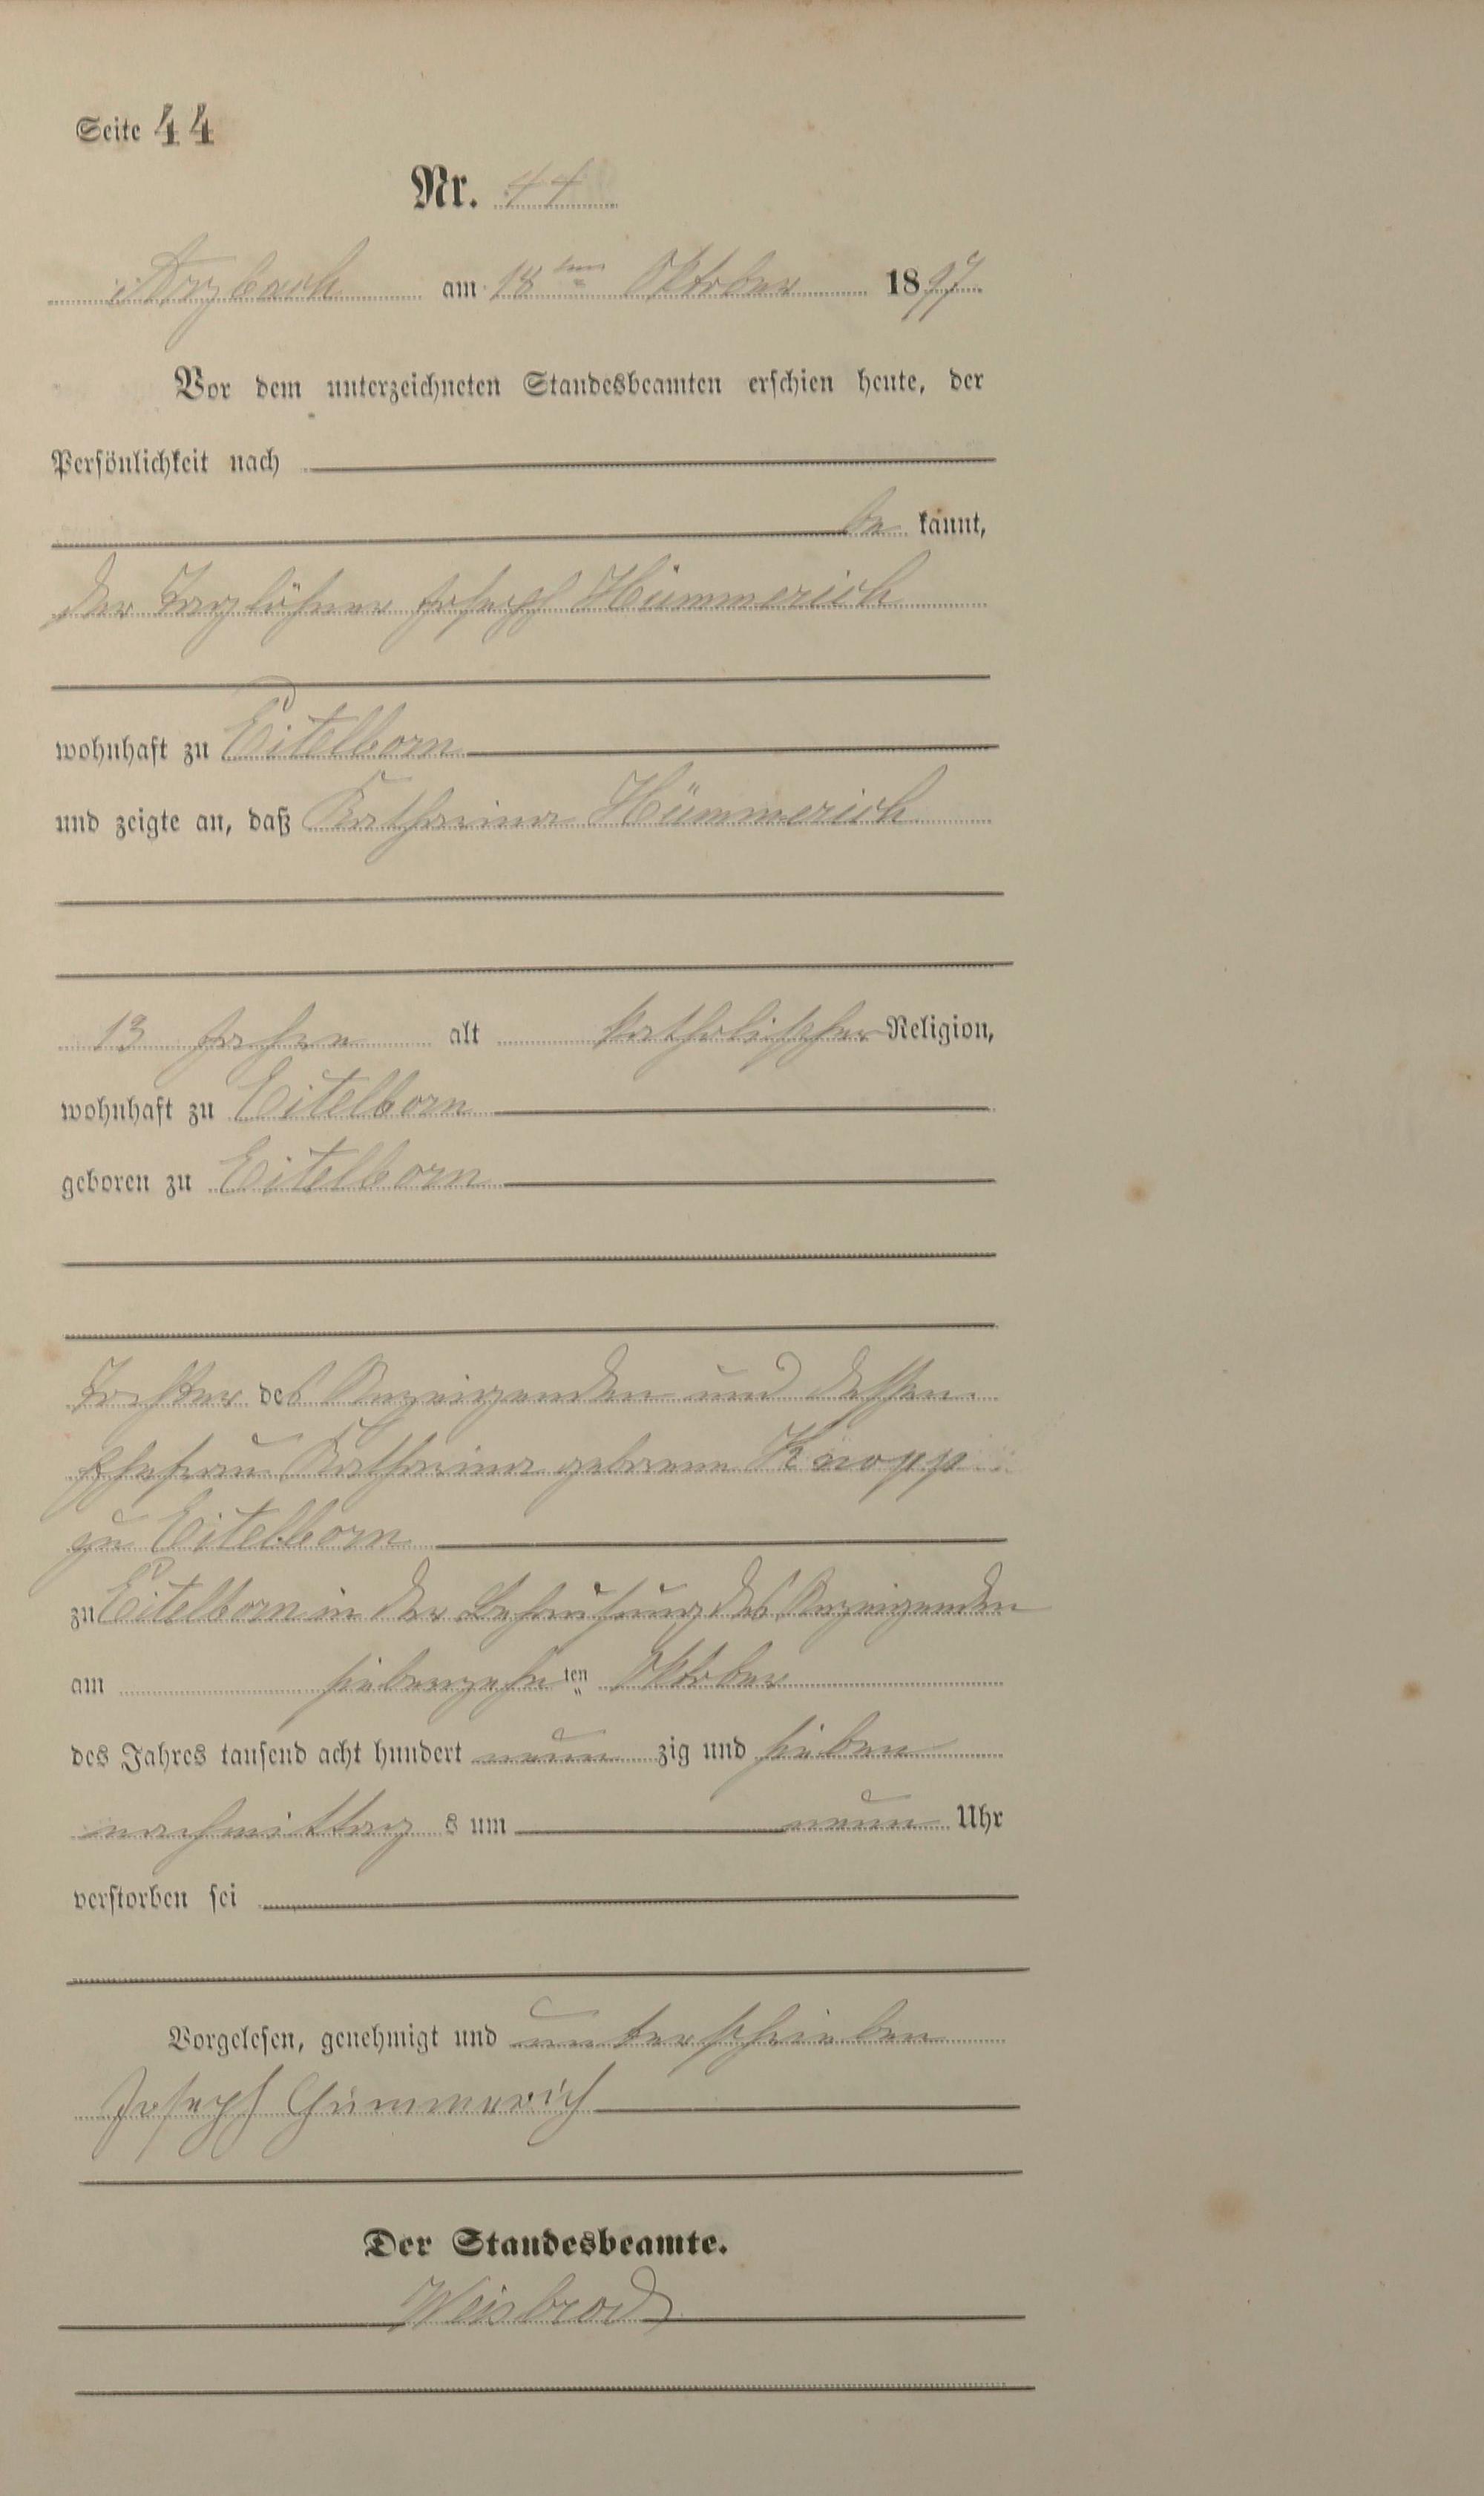 Seite 44
Nr. 44
Arzbach am 18ten Oktober 1897
Vor dem unterzeichneten Standesbeamten erschien heute, der
Persönlichkeit nach
be kannt,
der Taglöhner Joseph Hümmerich
wohnhaft zu Eitelborn
und zeigte an, daß Katharina Hümmerich
13 Jahre alt katholischer Religion,
wohnhaft zu Eitelborn
geboren zu Eitelborn
Tochter des Anzeigenden und dessen
Ehefrau Katharina geborene Knopp
zu Eitelborn
zu Eitelborn in der Behausung des Anzeigenden
am siebenzehnten Oktober
des Jahres tausend acht hundert neun zig und sieben
nachmittag s um neun Uhr
verstorben sei
Vorgelesen, genehmigt und unterschrieben
Joseph Hümmerich
Der Standesbeamte.
Weisbrod